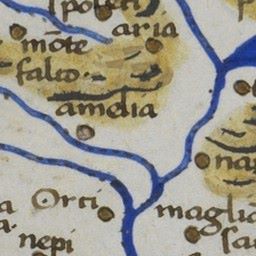 spoleti
aria
mōte
falco
amelia
nar
Orti
maglia
nepi